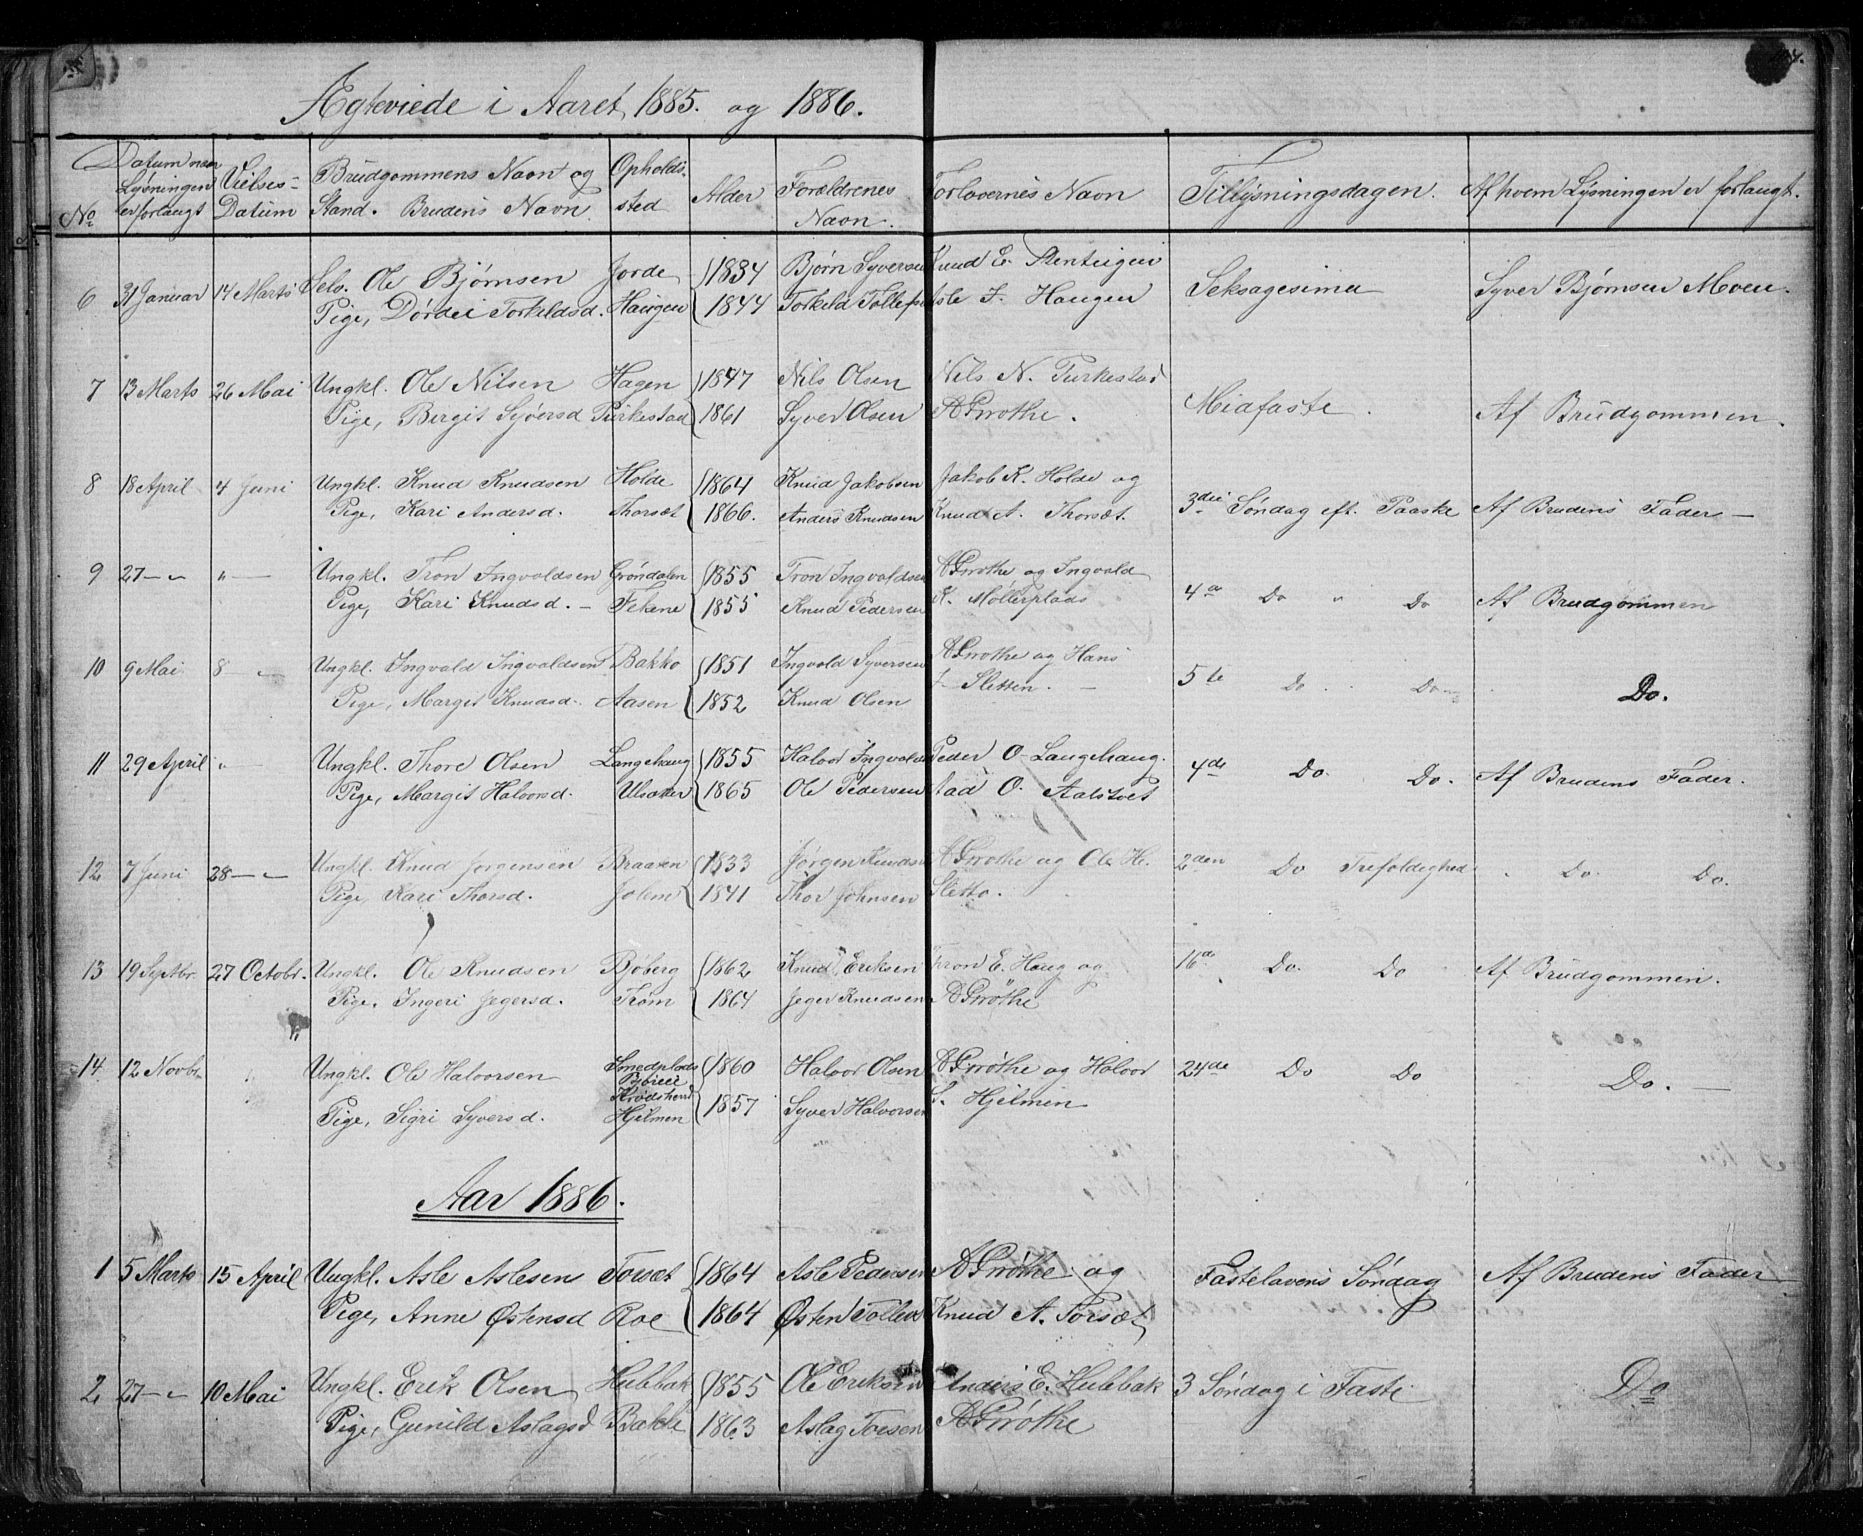 Ægteviede i Aaret 1885. og 1886.
No
Datum naar Lysningen er forlangt
Vielses-Datum
Brudgommens Navn og Stand. Brudens Navn.
Opholdssted
Alder
Forældrenes Navn.
Forlovernes Navn
Tillysningsdagen.
Af hvem Lysningen er forlangt.
6 31 Januar 14 Marts Sels. Ole Bjørnsen Jorde 1834 Bjørn Syversen Knud E.
Pige, Dordei Torkildsd. Haugen 1844 Torkild Tollefs Asle T. Haugen Seksagesima Syver Bjørnsen Moen.
7 13 Marts 26 Mai Ungkl. Ole Nilsen Hagen 1847 Nils Olsen Nils N. Turkestad
Pige, Bergit Syversd Turkestad 1861 Syver Olsen AGrøthe. Midfaste. Af Brudgommen.
8 18 April 4 Juni Ungkl. Knud Knudsen Holde 1864 Knud Jakobsen Jakob K. Holde og
Pige, Kari Andersd. Thorsæt 1866. Anders Knudsen Knud A. Thorsæt. 3die Søndag eft. Paaske Af Brudens Fader —
9 27 — " " — Ungkl. Tron Ingvoldsen Grøndalen 1855 Tron Ingvoldsen AGrøthe og Ingvold
Pige, Kari Knudsd. — Fekene 1855 Knud Pedersen K. Møllerplads 4de Do " Do Af Brudgommen
10 9 Mai 8 — " Ungkl. Ingvold Ingvoldsen Bakko 1851 Ingvold Syversen AGrøthe og Hans
Pige, Margit Knudsd. Aasen 1852 Knud Olsen Sletten. — 5te Do Do Do.
11 29 April " — Ungkl. Thore Olsen Langehaug 1855 Halvor Ingvolds Peder O. Langehaug.
Pige, Margit Halvorsd. Ulsaker 1865 Ole Pedersen O. 4de Do. Do. Af Brudens Fader.
12 7 Juni 28 — " Ungkl. Knud Jorgensen Braaten 1833 Jørgen Knudsen AGrøthe og Ole H.
Pige, Kari Thorsd. 1841 Thor Johnsen Sletto. 2den Do Trefoldighed " Do. Do.
13 19 Septbr. 27 Octobr. Ungkl. Ole Knudsen Bjøberg 1862 Knud Eriksen Tron E. Haug og
Pige. Ingeri Jegersd. Trøm 1864 Jeger Knudsen AGrøthe 16de Do. Do Af Brudgommen.
14. 12 Novbr " Ungkl. Ole Halvorsen Smedplads Krødsherred 1860 Halvor Olsen AGrøthe og Halvor
Pige, Sigri Syversd. Hjelmen 1857 Syver Halvorsen S. Hjelmen 24de Do Do Do. —
Aar 1886.
1 5 Marts 15 April Ungkl. Asle Aslesen Torsæt 1864 Asle Pedersen AGrøthe og
Pige, Anne Østensd Roe 1864 Østen Tollevs Knud A. Torsæt Fastelavens Søndag Af Brudens Fader
2 27 — " 10 Mai Ungkl. Erik Olsen Hulbak 1855 Ole Eriksen Anders E. Hulbak 3 Søndag i Faste Do
Pige, Gunild Aslagsd Bakke 1863 Aslag Toresen AGrøthe